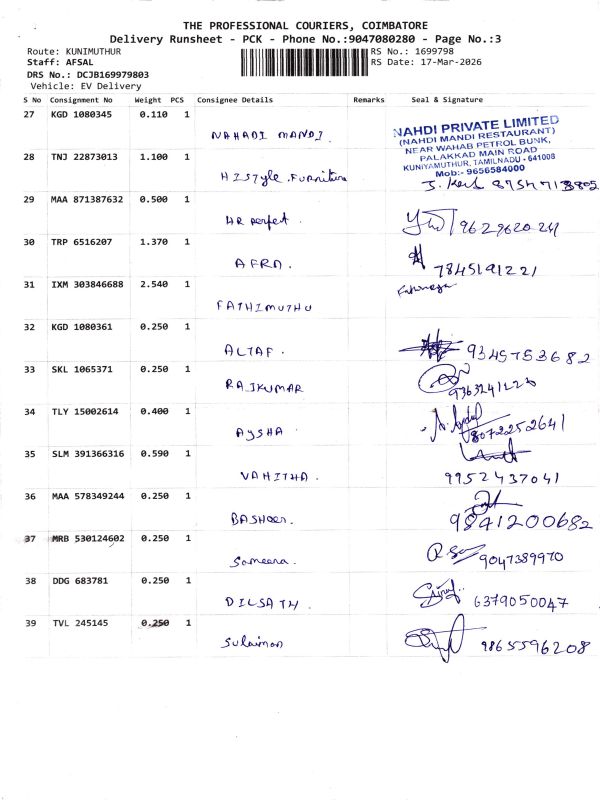 THE PROFESSIONAL COURIERS, COIMBATORE
Delivery Runsheet - PCK - Phone No.:9047080280 - Page No.:3
Route: KUNIMUTHUR
Staff: AFSAL
DRS No.: DCJB169979803
Vehicle: EV Delivery
RS No.: 1699798
RS Date: 17-Mar-2026
S No Consignment No Weight PCS Consignee Details Remarks Seal & Signature
27 KGD 1080345 0.110 1
NAHADI MANDI.
NAHDI PRIVATE LIMITED
(NAHDI MANDI RESTAURANT)
NEAR WAHAB PETROL BUNK,
PALAKKAD MAIN ROAD
KUNIYAMUTHUR, TAMILNADU - 641008
Mob:- 9656584000
28 TNJ 22873013 1.100 1
HISTyle Furniture
29 MAA 871387632 0.500 1
HR perfect.
9629620241
30 TRP 6516207 1.370 1
AFRA.
7845191221
31 IXM 303846688 2.540 1
FATHIMUTHU
32 KGD 1080361 0.250 1
ALTAF.
9345753682
33 SKL 1065371 0.250 1
RAJKUMAR
34 TLY 15002614 0.400 1
AYSHA.
8072252641
35 SLM 391366316 0.590 1
VAHITHA.
9952437041
36 MAA 578349244 0.250 1
BASHEER.
9841200682
37 MRB 530124602 0.250 1
Sameena.
9047389970
38 DDG 683781 0.250 1
DILSATH.
6379050047
39 TVL 245145 0.250 1
Sulaiman
9865596208